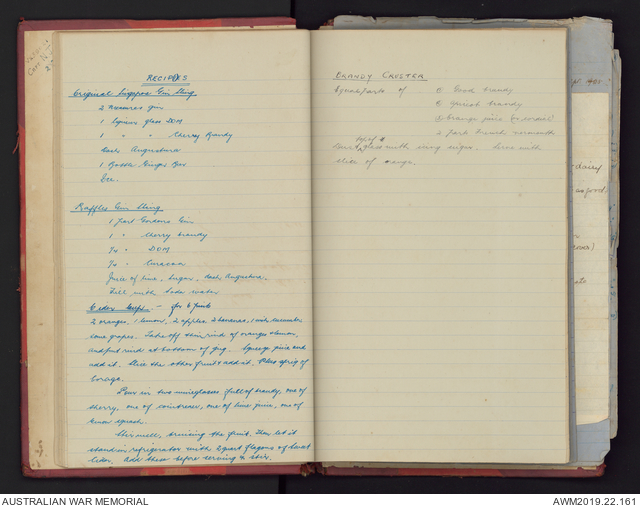 RECIPES
Original Singapore Gin Sling
2 measures gin
1 liqueur glass DOM
1 " " Cherry Brandy
dash Angustura
1 Bottle Ginger Beer
Ice.
Raffles Gin Sling
1 part Gordons Gin
1 " Cherry brandy
1/4 " DOM
1/4 " Curacao
Juice of lime, sugar, dash Angustura.
Fill with soda water
Cider Cup - for 6 pints
2 oranges, 1 lemon, 2 apples 2 bananas, 1 cucumber
some grapes. Take off thin rind of orange & lemon,
and put rind at bottom of jug. Squeeze juice and
add it. Slice the other fruit & add it. Plus sprig of
borage.
Pour in two wineglasses full of brandy, one of
sherry, one of cointreau, one of lime juice, one of
lemon squash.
Stir well, bruising the fruit. Then let it
stand in refrigerator with 2 quart flagons of sweet
cider. Add these before serving & stir.
BRANDY CRUSTER
Equal parts of Good brandy
Apricot brandy
Orange juice
2 part French vermouth
Dust top of glass with icing sugar. Serve with
slice of orange.
dairy
as food.
AUSTRALIAN WAR MEMORIAL
AWM2019.22.161